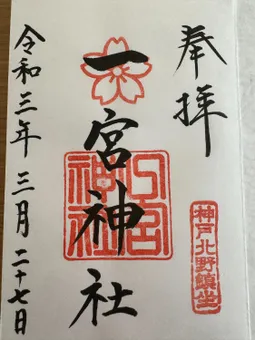 奉拝
一宮神社
一宮神社
神戸北野鎮坐
令和三年三月二十七日